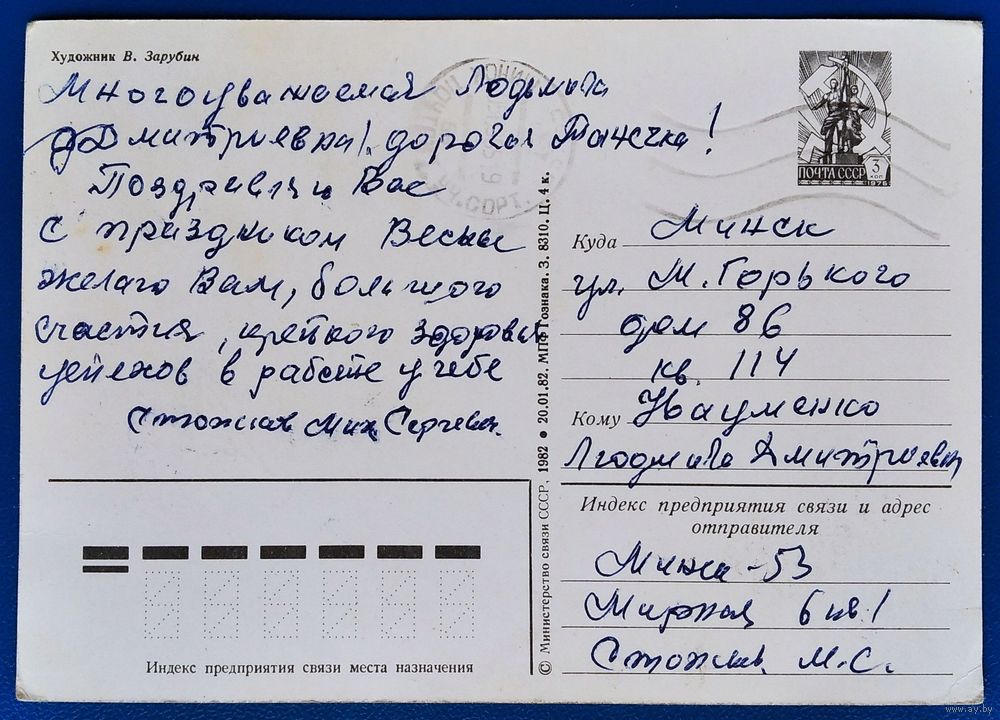 Художник В. Зарубин
Многоуважаемая Людмила
Дмитриевна! дорогая Танечка!
Поздравляю Вас
с праздником Весны
желаю Вам, большого
счастия, крепкого здоровья
успехов в работе учебе
Мих Сергеевич.
Индекс предприятия связи места назначения
© Министерство связи СССР, 1982 • 20.01.82. МПФ Гознака. З. 8310. Ц. 4 к.
ПОЧТА СССР 3 коп 1976
Куда Минск
ул. М. Горького
дом 86
кв. 114
Кому Науменко
Людмила Дмитриевна
Индекс предприятия связи и адрес
отправителя
Минск-53
Мирная 6 кв 1
М.С.
www.ay.by